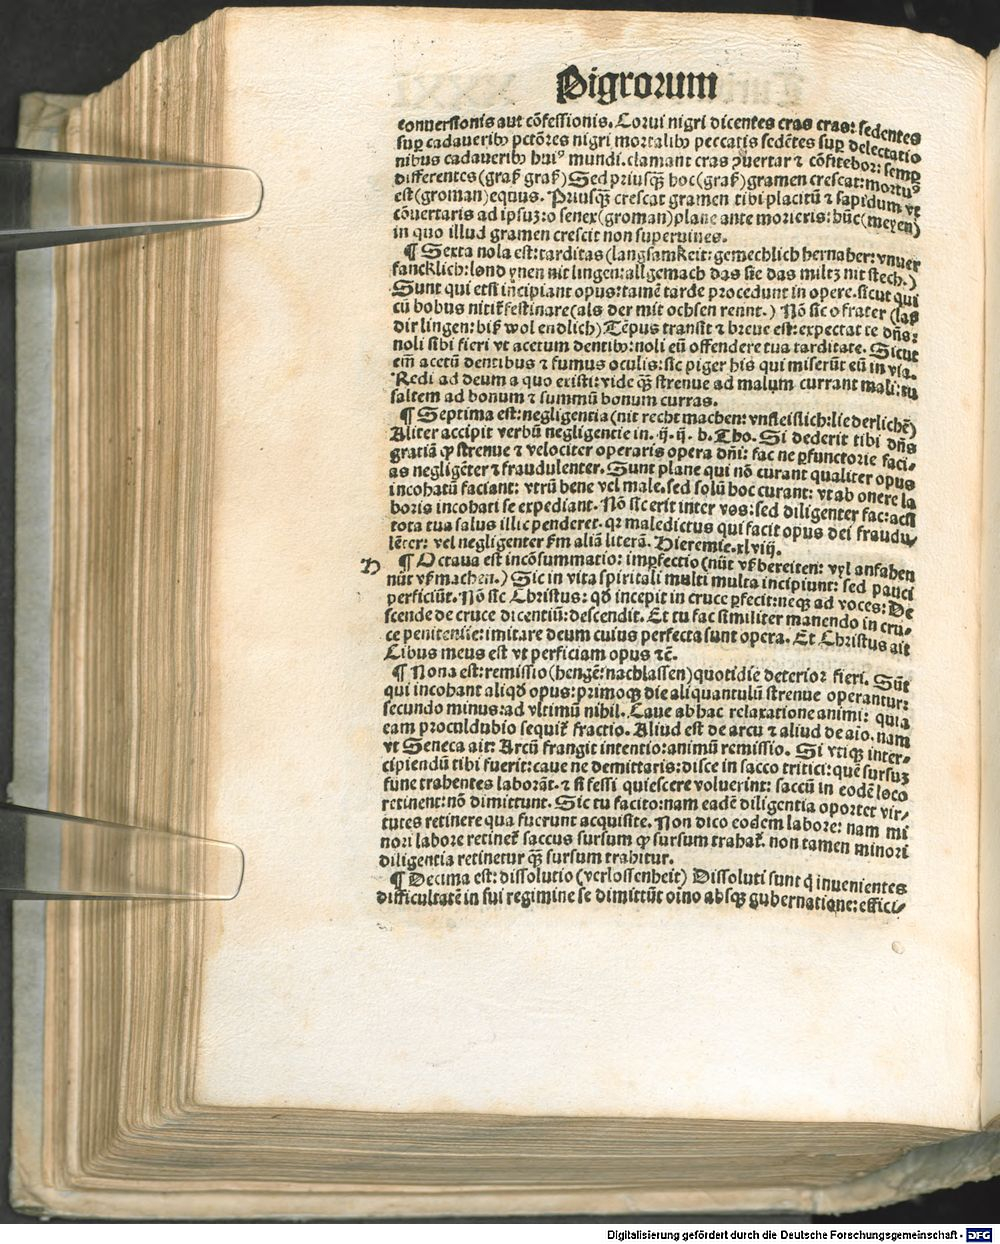 Pigrorum
conuersionis aut cõfessionis. Corui nigri dicentes cras cras: sedentes
sup cadaueribꝰ pctõres nigri mortalibꝰ peccatis sedẽtes sup delectatio
nibus cadaueribꝰ huiꝰ mundi. clamant cras ꝯuertar ⁊ cõfitebor: semp
differentes (graß graß) Sed priusꝙ̃ hoc (graß) gramen crescat: mortuꝰ
est (groman) equus. Priusꝙ̃ crescat gramen tibi placitũ ⁊ sapidum vt
cõuertaris ad ipsuꝫ: o senex (groman) plane ante morieris: hũc (meyen)
in quo illud gramen crescit non superuiues.
¶ Sexta nola est: tarditas (langsamkeit: gemechlich hernaher: vnuer
fancklich: lond ynen nit lingen: allgemach das sie das miltz nit stech.)
Sunt qui etsi incipiant opus: tamẽ tarde procedunt in opere. sicut qui
cũ bobus nitit̃ festinare (als der mit ochsen rennt.) Nõ sic o frater (las
dir lingen: biß wol endlich) Tẽpus transit ⁊ breue est: expectat te dñs:
noli sibi fieri vt acetum dentibꝰ: noli eũ offendere tua tarditate. Sicut
em̃ acetũ dentibus ⁊ fumus oculis: sic piger his qui miserũt eũ in via.
Redi ad deum a quo existi: vide ꝙ̃ strenue ad malum currant mali: tu
saltem ad bonum ⁊ summũ bonum curras.
¶ Septima est: negligentia (nit recht machen: vnfleislich: liederlichẽ)
Aliter accipit verbũ negligentie in. ij. ij. b. Tho. Si dederit tibi dñs
gratiã ꝙ strenue ⁊ velociter operaris opera dñi: fac ne ꝑfunctorie faci-
as negligẽter ⁊ fraudulenter. Sunt plane qui nõ curant qualiter opus
incohatũ faciant: vtrũ bene vel male. sed solũ hoc curant: vt ab onere la
boris incohati se expediant. Nõ sic erit inter vos: sed diligenter fac: acsi
tota tua salus illic penderet. qꝛ maledictus qui facit opus dei fraudu-
lẽter: vel negligenter ẜm aliã literã. Hieremie. xlviij.
H ¶ Octaua est incõsummatio: imꝑfectio (nüt vß bereiten: vyl anfahen
nüt vß machen.) Sic in vita spiritali multi multa incipiunt: sed pauci
perficiũt. Nõ sic Christus: qđ incepit in cruce ꝑfecit: neqꝫ ad voces: De
scende de cruce dicentiũ: descendit. Et tu fac similiter manendo in cru-
ce penitentie: imitare deum cuius perfecta sunt opera. Et Christus ait
Cibus meus est vt perficiam opus ⁊c̃.
¶ Nona est: remissio (hengẽ: nachlassen) quotidie deterior fieri. Sũt
qui incohant aliqđ opus: primoqꝫ die aliquantulũ strenue operantur:
secundo minus: ad vltimũ nihil. Caue ab hac relaxatione animi: quia
eam proculdubio sequit̃ fractio. Aliud est de arcu ⁊ aliud de aĩo. nam
vt Seneca ait: Arcũ frangit intentio: animũ remissio. Si vtiqꝫ inter-
cipiendũ tibi fuerit: caue ne demittaris: disce in sacco tritici: quẽ sursuꝫ
fune trahentes laborãt. ⁊ si fessi quiescere voluerint: saccũ in eodẽ loco
retinent: nõ dimittunt. Sic tu facito: nam eadẽ diligentia oportet vir-
tutes retinere qua fuerunt acquisite. Non dico eodem labore: nam mi
nori labore retinet̃ saccus sursum ꝙ sursum trahat̃. non tamen minori
diligentia retinetur ꝙ̃ sursum trahitur.
¶ Decima est: dissolutio (verlossenheit) Dissoluti sunt q̇ inuenientes
difficultatẽ in sui regimine se dimittũt oĩno absqꝫ gubernatione: effici-
Digitalisierung gefördert durch die Deutsche Forschungsgemeinschaft - DFG